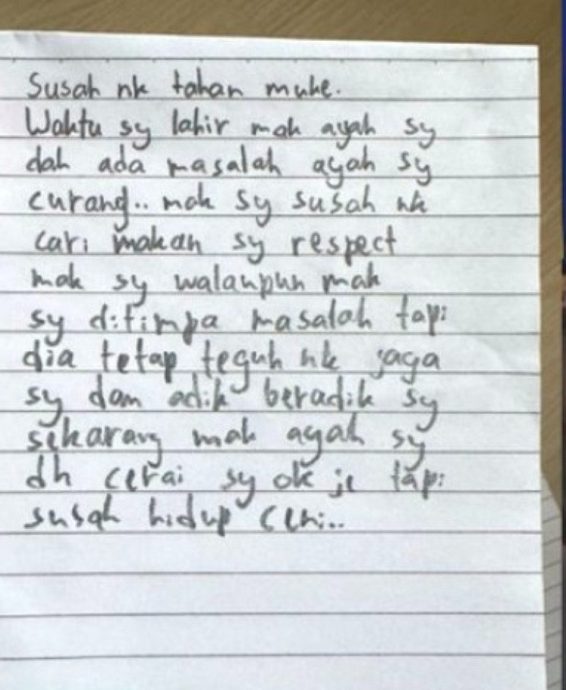 Susah nk tahan muke.
Waktu sy lahir mak ayah sy
dah ada masalah ayah sy
curang.. mak sy susah nk
cari makan sy respect
mak sy walaupun mak
sy ditimpa masalah tapi
dia tetap teguh nk jaga
sy dan adik beradik sy
sekarang mak ayah sy
dh cerai sy ok je tapi
susah hidup ceni..